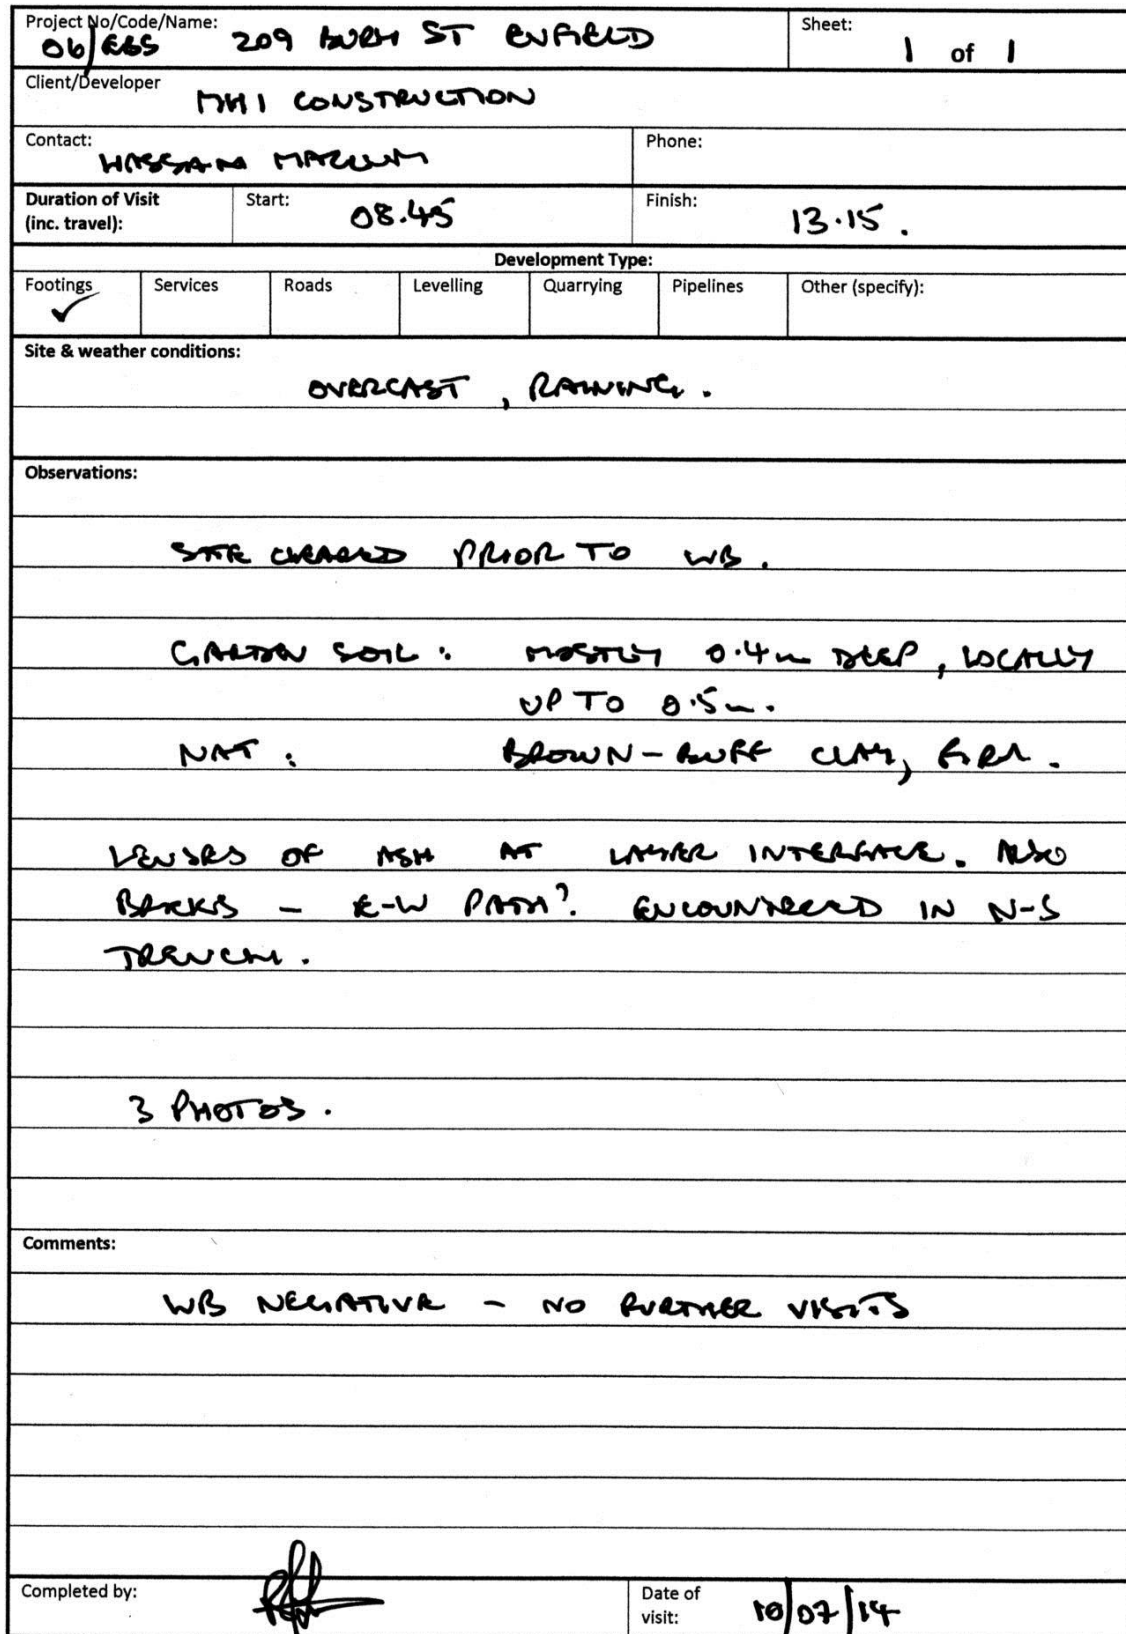 Project No/Code/Name: Sheet:
209 ST ENFIELD 1 of 1
Client/Developer
MHI CONSTRUCTION
Contact: Phone:
HASSAN
Duration of Visit Start: Finish:
(inc. travel): 08.45 13.15.
Development Type:
Footings Services Roads Levelling Quarrying Pipelines Other (specify):
✓
Site & weather conditions:
OVERCAST, RAINING.
Observations:
SITE CLEARED PRIOR TO WB.
GARDEN SOIL: MOSTLY 0.4m DEEP, LOCALLY
UP TO 0.5m.
NAT: BROWN-BUFF CLAY, FIRM.
LENSES OF ASH AT LAYER INTERFACE. ALSO
BRICKS - E-W PATH? ENCOUNTERED IN N-S
TRENCH.
3 PHOTOS.
Comments:
WB NEGATIVE - NO FURTHER VISITS
Completed by: Date of
visit: 10/07/14